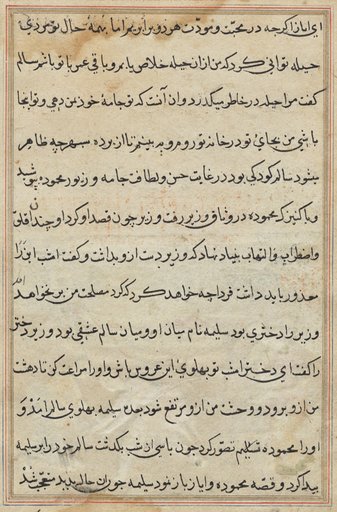 ای ایاز اگرچه در محبّت و مودّت هر دو برابریم اما بهمهٔ حال تو مردی
حیله توانی کرد که من از ان حیله خلاص یابم و باقی عمر با تو باشم سالم
گفت مرا حیله در خاطر میگذرد و ان آنست که تو جامهٔ خود بمن دهی و تو اینجا
باشی من بجای تو در خانه تو روم و به بینم تا از پرده سپهر چه ظاهر
میشود سالم کودکی بود در غایت حسن و لطافت جامه و زیور محموده بپوشید
و با کنیزک محموده در وثاق وزیر رفت وزیر چون قصد او کرد او چندان قلق
و اضطراب و التهاب بنیاد نهاد که وزیر دست از و بداشت و گفت امشب این را
معذور باید داشت فردا چه خواهد کرد که گرد مصلحت من بر نخواهد آمد
وزیر را دختری بود سلیمه نام میان او و میان سالم عشقی بود وزیر دختر
را گفت ای دختر امشب تو بپهلوی این عروس باش و او را مراعت کن تا دهشت
من از و برود و وحشت من از و مرتفع شود بعده سلیمه بپهلوی سالم آمد و
او را محموده تصوّر کرد چون پاسی از شب بگذشت سالم خود را بر سلیمه
پیدا کرد و قصّه محموده و ایاز باز نمود سلیمه چون ان حال بدید متعجّب شد